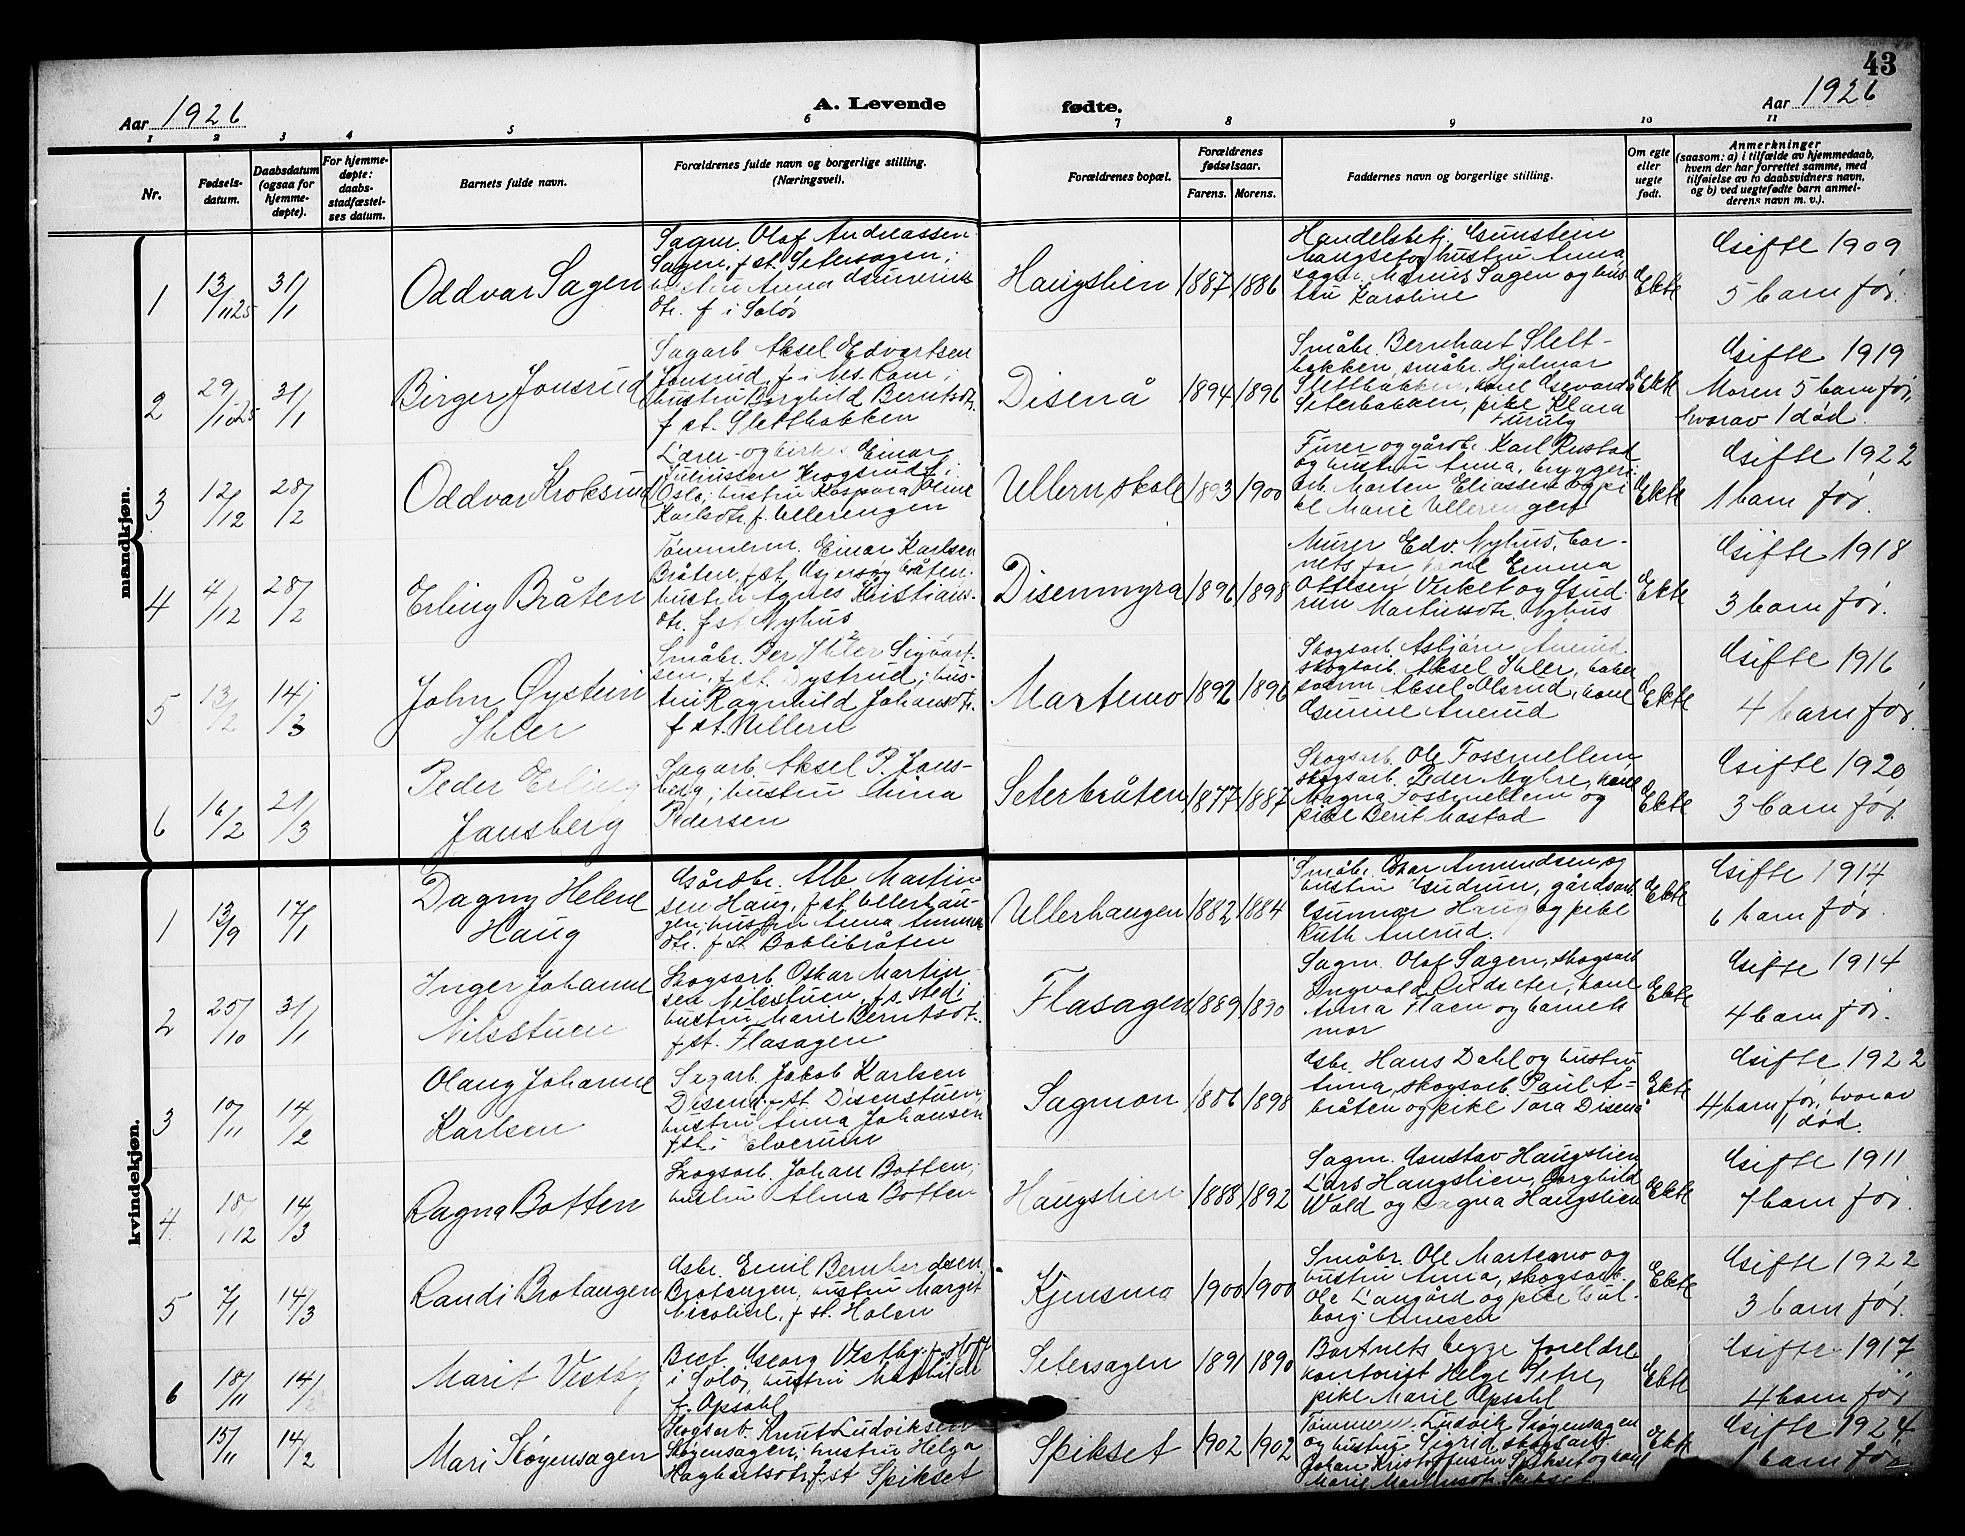 43
Aar 1926
A. Levende
fødte.
Aar 1926
1 2 3 4 5 6 7 8 9 10 11
Nr.
Fødsels-
datum.
Daabsdatum
(ogsaa for
hjemme-
døpte).
For hjemme-
døpte:
daabs-
stadfæstel-
ses datum.
Barnets fulde navn.
Forældrenes fulde navn og borgerlige stilling.
(Næringsvei).
Forældrenes bopæl.
Forældrenes
fødselsaar.
Farens. Morens.
Faddernes navn og borgerlige stilling.
Om egte
eller
uegte
født.
Anmerkninger
(saasom: a) i tilfælde av hjemmedaab,
hvem der har forrettet samme, med
tilføielse av to daabsvidners navn,
og b) ved uegtefødte barn anmel-
derens navn m. v.).
mandkjøn.
1
13/11 25
31/1
Oddvar Sagen
Sagm. Olof Andreassen
Sagen, f. st. Setersagen;
hustru Anna
dtr. f i Solør
Haugstien
1887 1886
Handelsbetj. Gunstein
og hustru Anna,
sagm. Marius Sagen og hus-
tru Karoline
Ekte
Gifte 1909
5 barn før.
2
29/10 25
31/1
Birger Jonsrud
Sagarb. Aksel Edvartsen
Jonsrud, f. i Nes, Rom.;
hustru Borghild Berntsdtr.
f. st. Sletthabken
Disenå
1894 1896
Småbr. Bernhart Slett-
bakken, småbr. Hjalmar
Slettbakken, kone
Seterbakken, pike Klara
Furulg
Ekte
Gifte 1919
Moren 5 barn før,
hvorav 1 død.
3
12/12
28/2
Oddvar Kroksrud
Lærer- og Einar
Juliussen Krogsrud f. i
Oslo; hustru Kaspara Oline
Karlsdtr. f. Ullerengen
Ullern skole
1893 1900
Furer og gårdbr. Karl Rustad
og hustru Anna, bryggeri-
arb. Marten Eliassen og pi
ke Marie Ullerengen
Ekte
Gifte 1922
1 barn før.
4
4/12
28/2
Erling Bråten
Tømmerm. Einar Karlsen
Bråten, f. st. bråten
hustru Agnes Kristians-
dtr. f. st. Nyhus
Disenmyra
1896 1898
Murer Edv. Nyhus, bar-
nets far, kone Emma
Ottesen Virket og Gud-
run Martinsdtr. Nyhus
Ekte
Gifte 1918
3 barn før.
5
13/2
14/3
John Øystein
Ihler
Småbr. Per Ihler Sigvart-
sen, f. st. Dystrud; hus-
tru Ragnhild Johansdtr.
f. st. Ullern
Martemo
1892 1896
Skogsarb. Asbjørn Anerud
skogsarb. Aksel Ihler,
Aksel Olsrud, kone
Gunne Anerud
Ekte
Gifte 1916
4 barn før.
6
16/2
21/3
Peder Erling
Jansberg
Sagarb. Aksel P. Jons-
berg; hustru Anna
Pedersen
Seterbråten
1877 1887
Skogsarb. Ole Fossmellem
skogsarb. Peder Myhre, kone
Magna Fossmellem og
pike Berit Mostad
Ekte
Gifte 1920
3 barn før.
kvindekjøn.
1
13/9
17/1
Dagny Helene
Haug
Gårdbr. Alb. Martin-
sen Haug, f. st. Ullerhau-
gen; hustru Anna
dtr. f. st. Boblibråten
Ullerhaugen
1882 1884
Småbr. Oskar Amundsen og
hustru Gudrun, gårdsarb.
Gunnar Haug og pike
Ruth Anerud.
Ekte
Gifte 1914
6 barn før.
2
25/10
31/1
Inger Johanne
Nilsstuen
Skogsarb. Oskar Martin
sen Nilsstuen, f. s. sted;
hustru Marie Berntsdtr.
f. st. Flasagen
Flasagen
1889 1890
Sagm. Olof Sagen, skogsarb
Ingvald Rudseter, kone
Anna Flaen og barnets
mor
Ekte
Gifte 1914
4 barn før.
3
10/11
14/2
Olaug Johanne
Karlsen
Sagarb. Jakob Karlsen
Disen, f. st. Disenstuen
hustru Anna Johansen
f. st. i Elverum
Sagmon
1886 1898
Gbr. Hans Dahl og hustru
Anna, skogsarb. Paul Å-
bråten og pike Tora Disenå
Ekte
Gifte 1922
4 barn før, hvorav
1 død.
4
18/12
14/3
Ragna Botten
Skogsarb. Johan Botten;
hustru Alma Botten
Haugstien
1888 1892
Sagm. Gustav Haugstien
Lars Haugstien, Borghild
Wold og Ragna Haugstien
Ekte
Gifte 1911
7 barn før.
5
7/1
14/3
Randi Brotangen
Gbr. Emil Berntersen
Brotangen, hustru Margit
Nicoline, f. st. Holen
Kjensmo
1900 1900
Småbr. Ole Martemo og
hustru Anna, skogsarb.
Ole Langård og pike Vål-
borg Amesen
Ekte
Gifte 1922
3 barn før.
6
18/11
14/2
Marit Vestby
Georg Vestby
i Solør, hustru Mathilde
f. Opsahl
Setersagen
1891 1890
Barnets begge foreldre
kontorist Helge Setre,
pike Marie Opsahl
Ekte
Gifte 1917
4 barn før
15/11
14/2
Mari Skøyensagen
Skogsarb. Knut Ludviksen
Skøyensagen; hustru Helga
Hagbartsdtr. f. st. Spikset
Spikset
1902 1902
Tømmerm. Ludvik Skøyensagen
og hustru Sigrid, skogsarb
Johan Kristoffersen Spikset og kone
Marie Martinsdtr. Spikset
Ekte
Gifte 1924
1 barn før